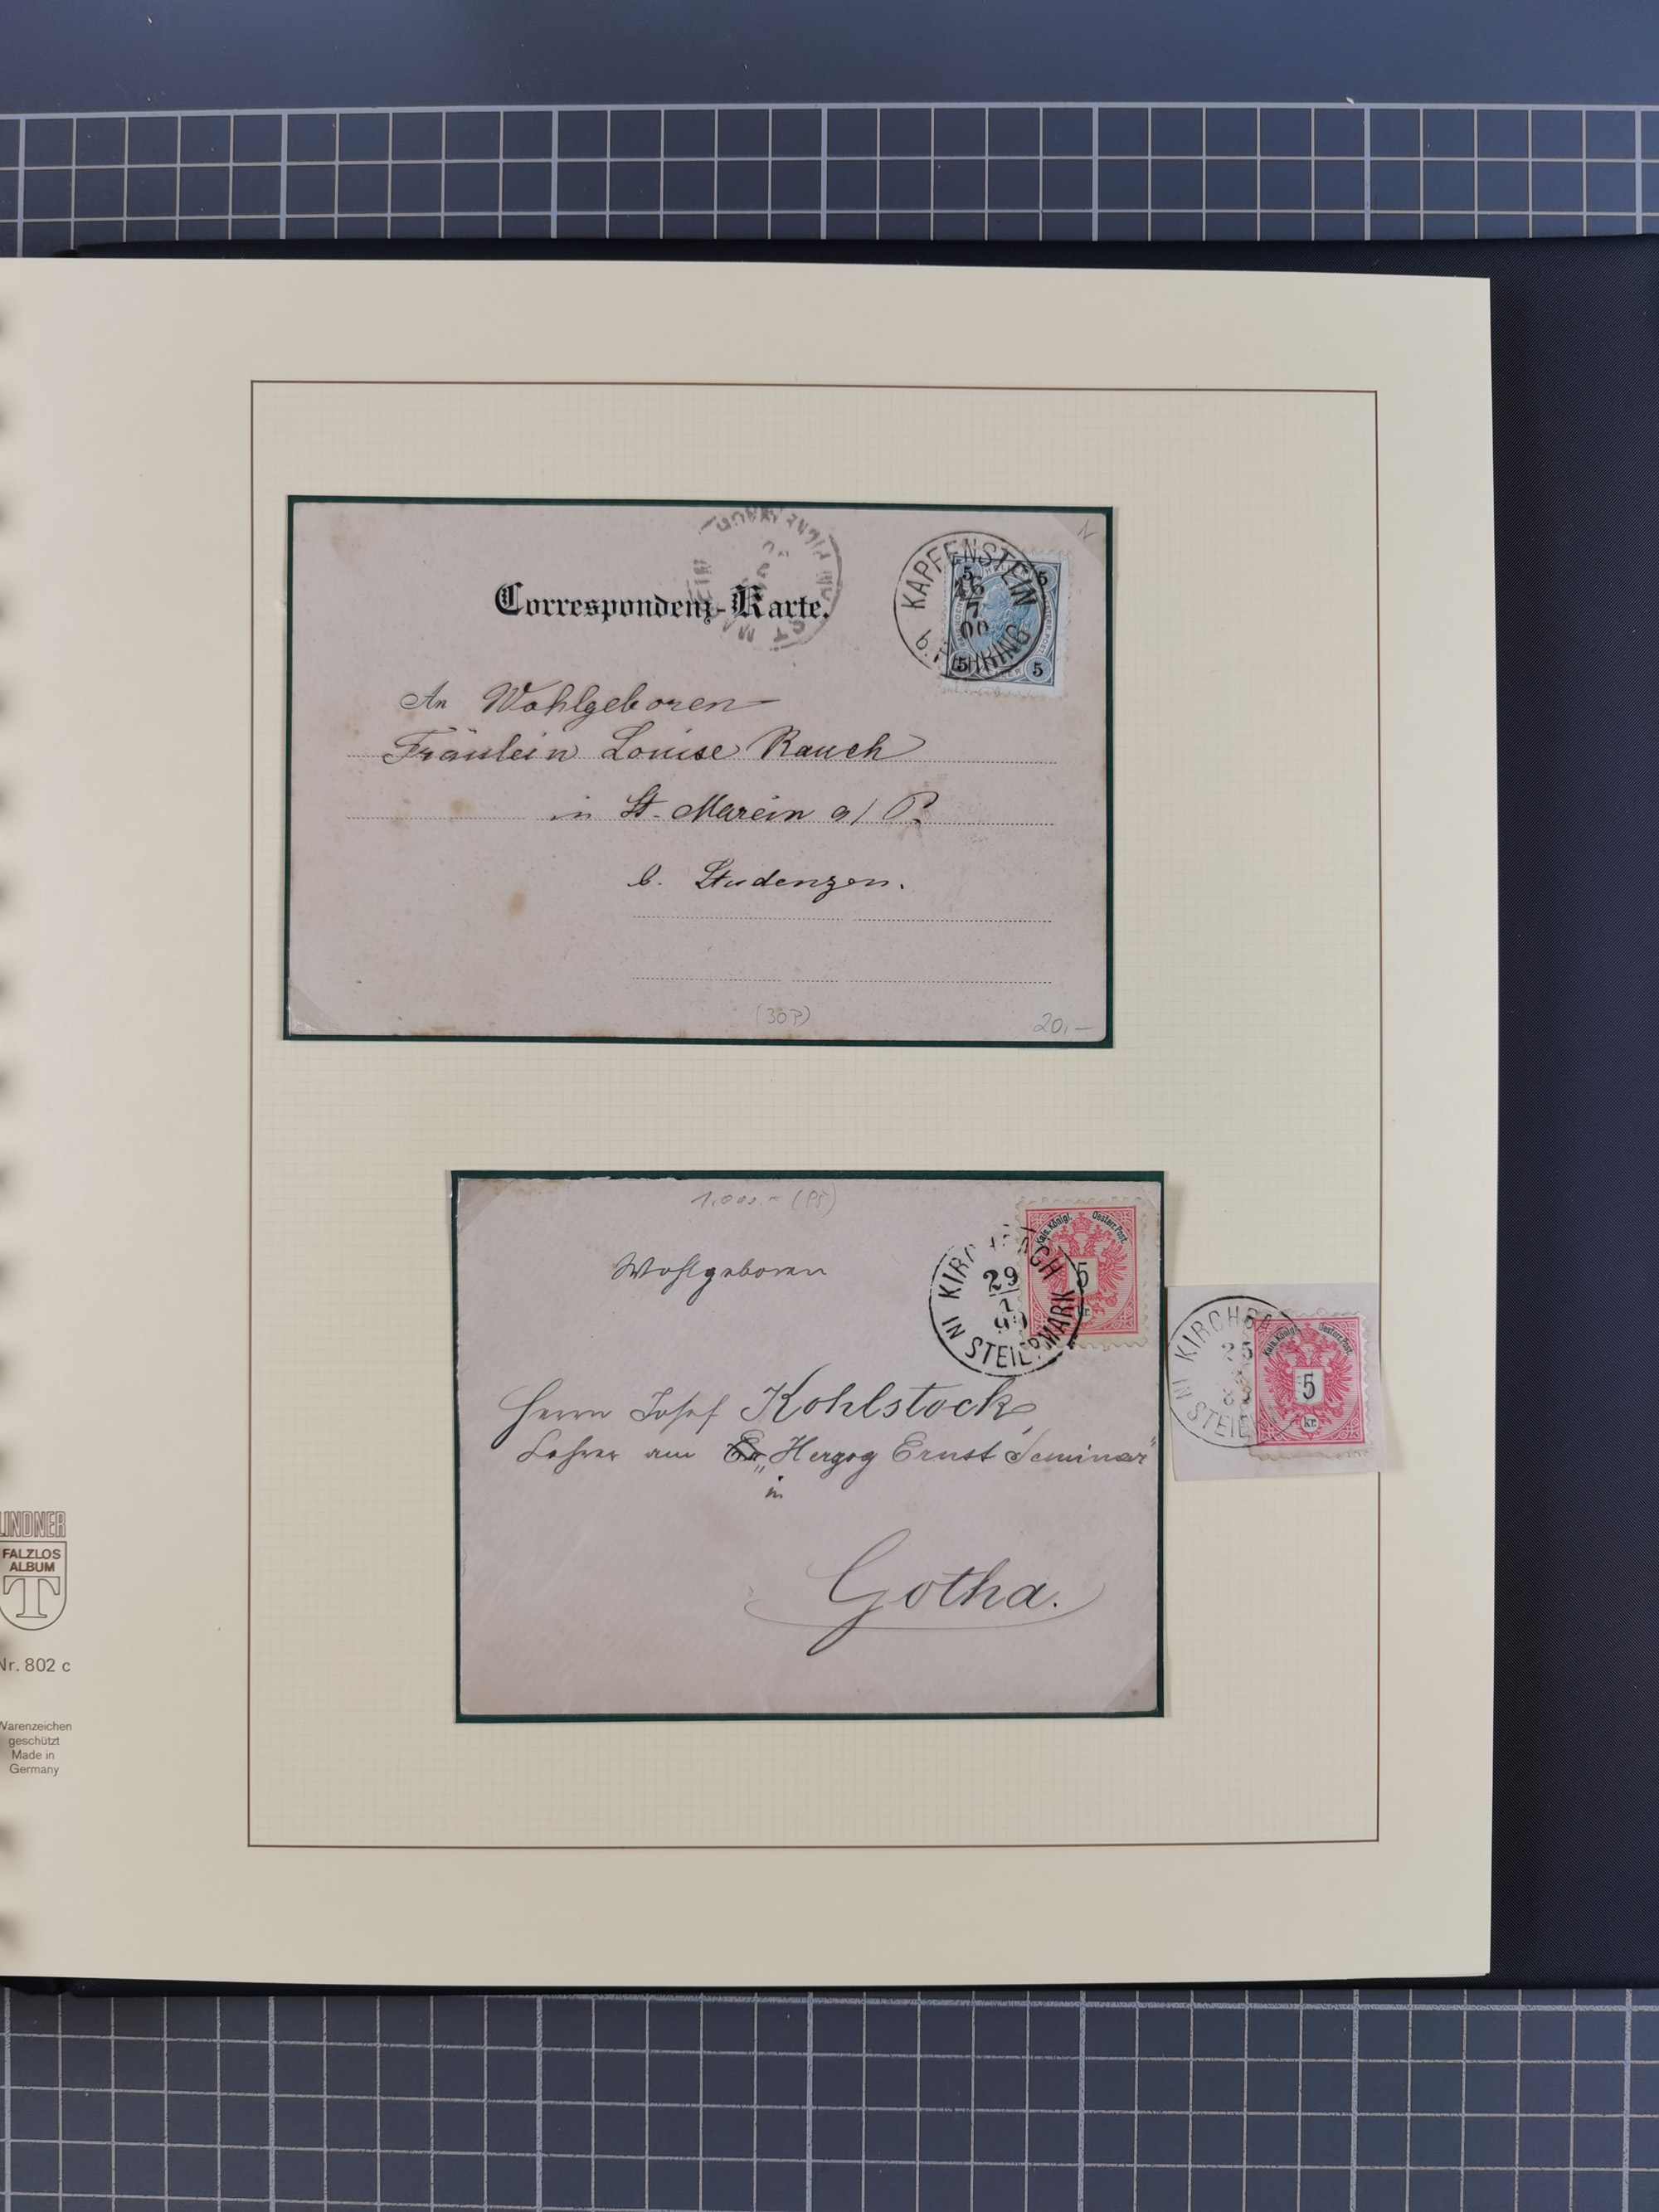 KAPFENSTEIN
b. FEHRING
16
7
00
5
5
5
5
N
Correspondenz-Karte.
An Wohlgeboren
Fräulein Louise Rauch
in St. Marein a/ P.
b. Studenzen.
20,-
1.000.- (PS)
Kais. Königl. Oesterr. Post.
5
kr.
29
7
IN STEIERMARK
Wohlgeboren
Herrn Josef Kohlstock,
Lehrer am „Herzog Ernst Seminar"
in
Gotha.
KIRCHBA
25
IN STEIE
Kais. Königl. Oesterr. Post.
5
kr.
LINDNER
FALZLOS
ALBUM
T
Nr. 802 c
Warenzeichen
geschützt
Made in
Germany